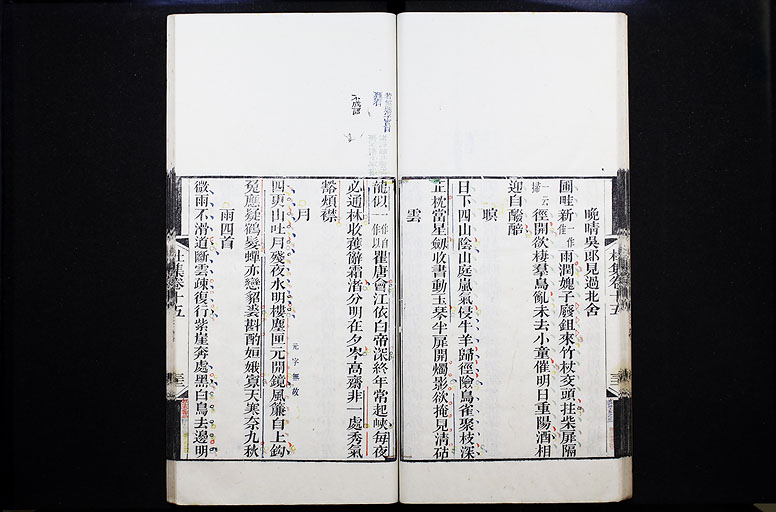 晚晴吳郎見過北舍
圃畦新一作佳雨潤媿子廢鉏來竹杖交頭拄柴扉隔
一云掃徑開欲棲羣鳥亂未去小童催明日重陽酒相
迎自醱醅
暝
日下四山陰山庭嵐氣侵牛羊歸徑險鳥雀聚枝深
正枕當星劒收書動玉琴半扉開燭影欲掩見清砧
雲
龍似一作自一作以瞿唐會江依白帝深終年常起峽每夜
必通林收穫辭霜渚分明在夕岑高齋非一處秀氣
豁煩襟
月
四更山吐月殘夜水明樓塵匣元開鏡風簾自上鈎
兔應疑鶴髮蟬亦戀貂裘斟酌姮娥寡天寒奈九秋
元字無敵
雨四首
微雨不滑道斷雲疎復行紫崖奔處黑白鳥去邊明
杜集卷十五
杜集卷十五